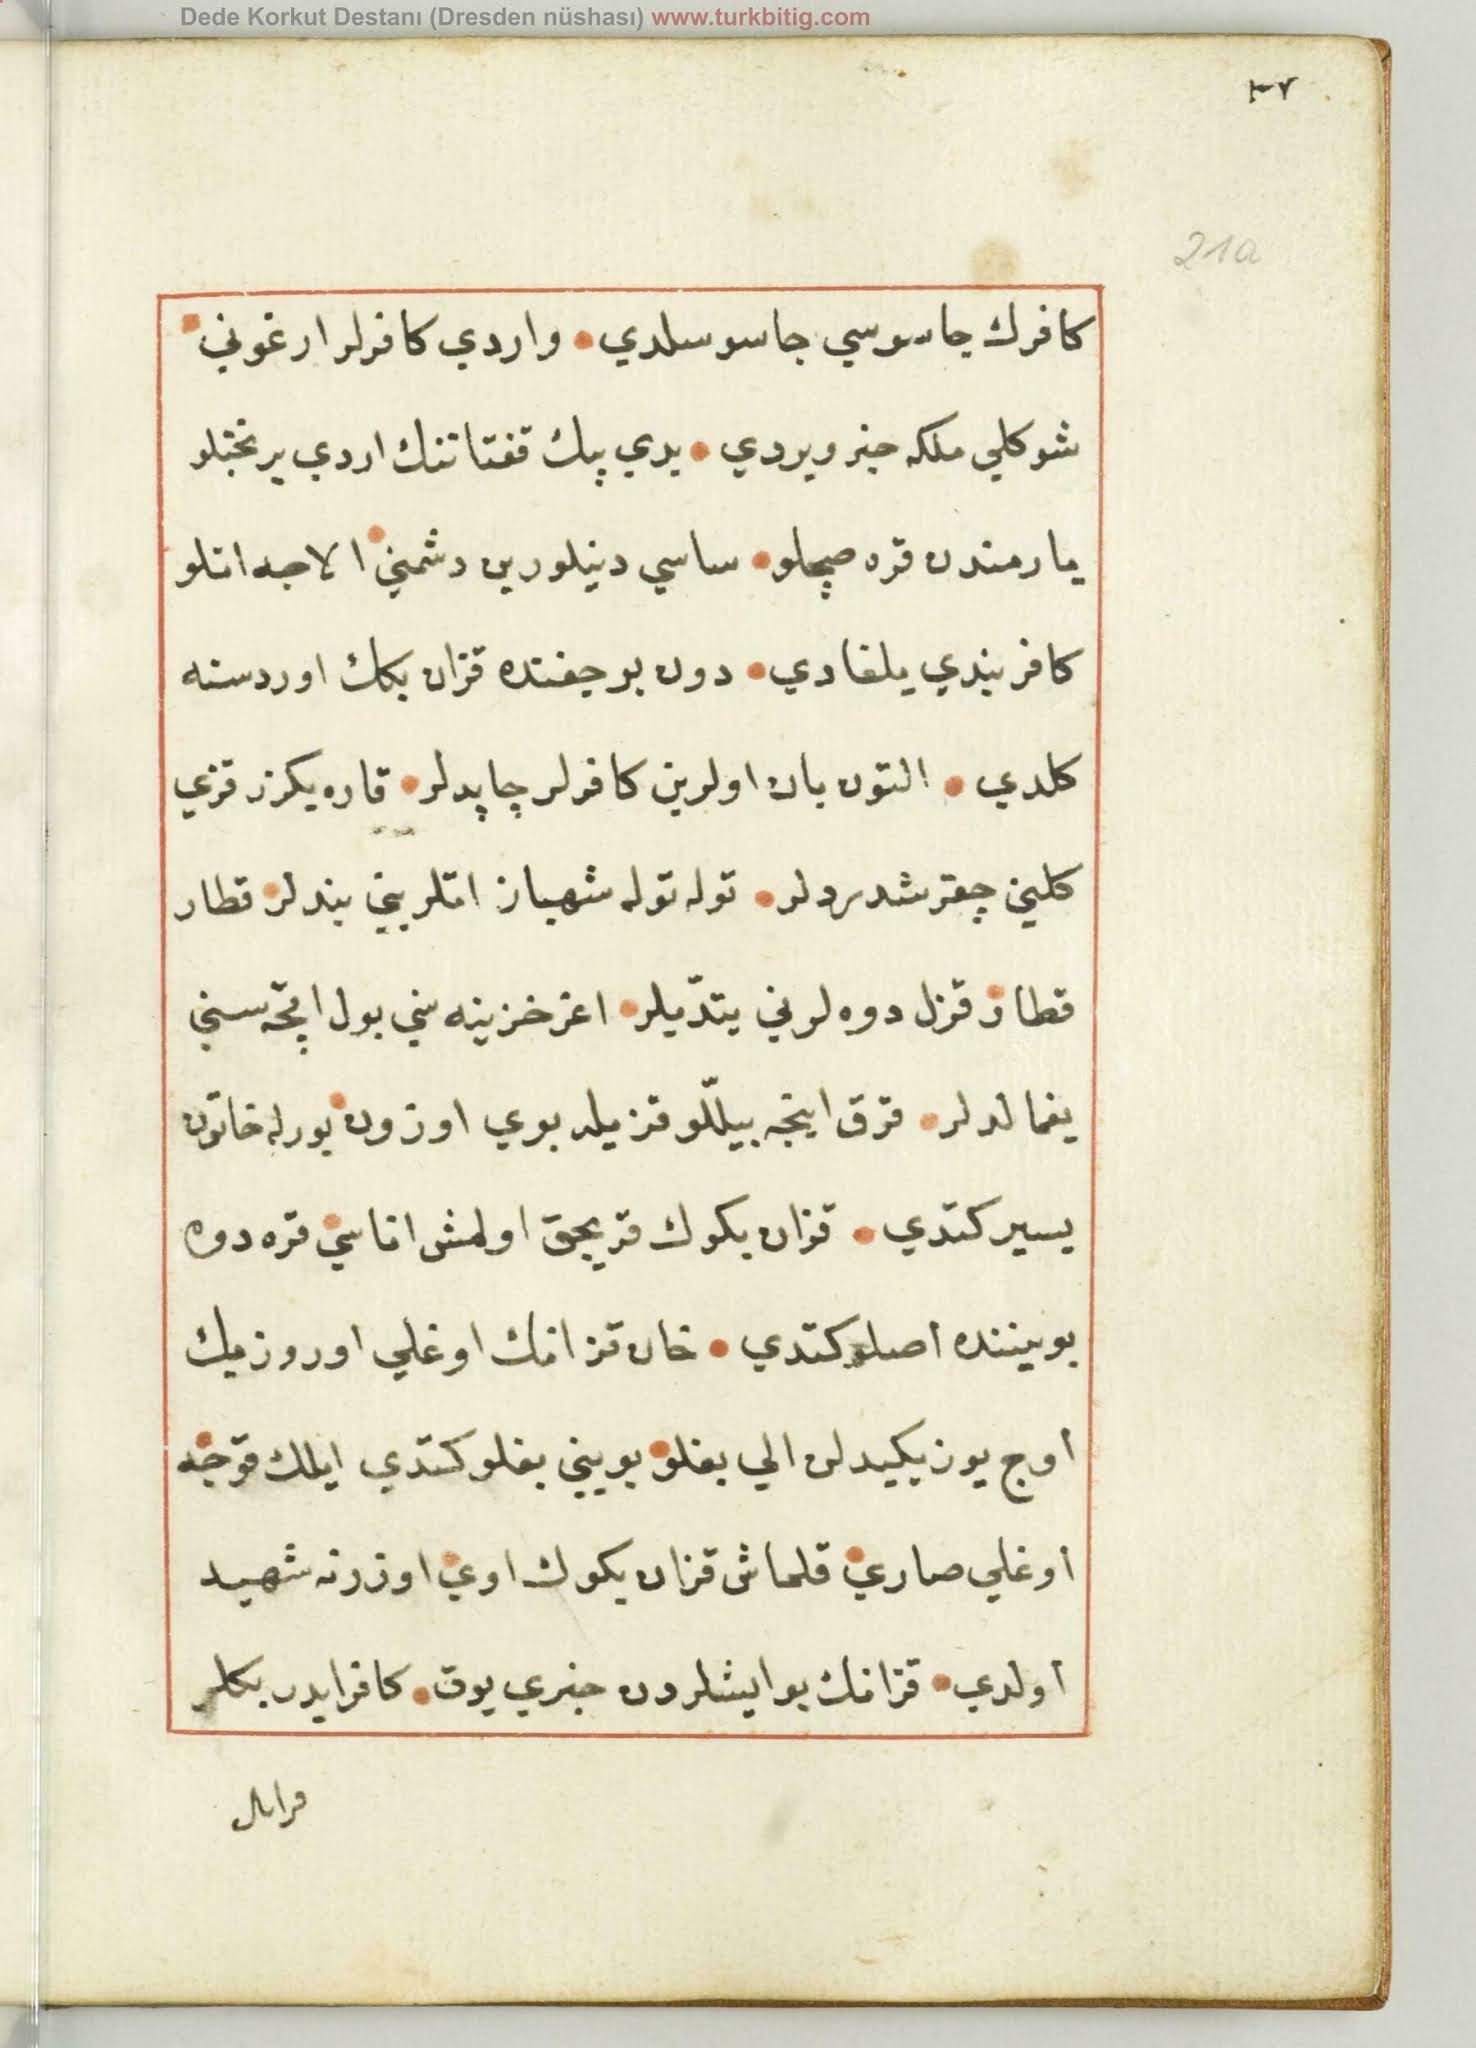 Dede Korkut Destanı (Dresden nüshası) www.turkbitig.com
٣٧
21a
كافرك جاسوسي جاسوسلدي • واردي كافرلر ارغوني •
شوكلي ملكه خبر ويردي • يدي پيك قفتاننك اردي يرتخلو
يارمندن قره صچلو • ساسي دينلو دين دشمني • الاجه اتلو
كافر بندي يلغادي • دون بوجغنده قزان بكك اوردسنه
كلدي • التون بان اولرين كافرلر چاپدلر • قازه بكزر قزي
كليني چقرشدردلر • توله توله شهباز اتلريني بندلر • قطار
قطار • قزل دوه لرني يتدّيلر • اغر خزينه سني بول اقچه سني
يغمالدلر • قرق اينجه بيللّو قزيله بوي اوزون • بورله خاتون
يسير كتدي • قزان بكوك قريجق اولمش اناسي • قره دوه
بويننده اصلو كتدي • خان قزانك اوغلي اوروز بيك
اوج يوز يكيدلن الي بغلو • بويني بغلو كتدي ايلك قوجه •
اوغلي صاري • قلماش قزان بكوك اوي • اوزرنه شهيد
اولدي • قزانك بو ايشلردن خبري يوق • كافر ايدر بكلر